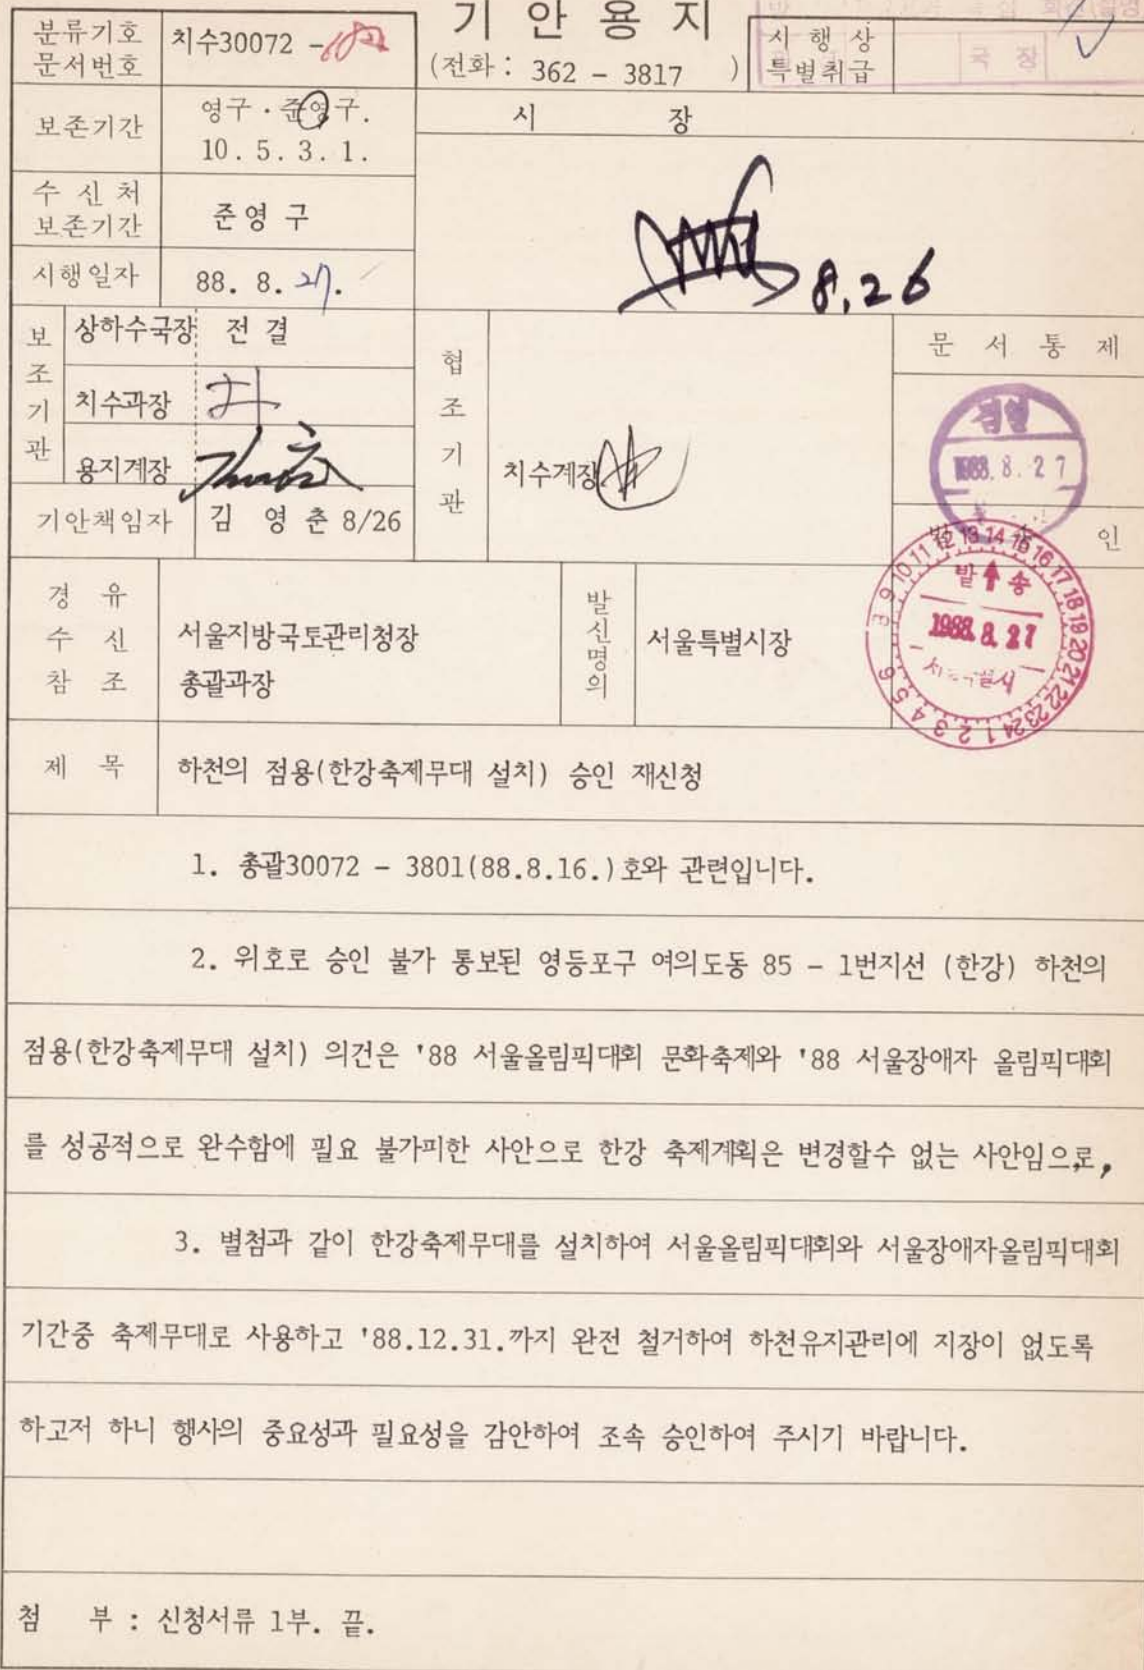 기안용지
분류기호
문서번호
치수30072 -
(전화 : 362 - 3817 )
시행상
특별취급
국장
보존기간
영구 · 준영구.
10 . 5 . 3 . 1 .
시 장
수신처
보존기간
준영구
8.26
시행일자
88. 8. 27.
보조기관
상하수국장 전결
치수과장
용지계장
기안책임자
김 영춘 8/26
협조기관
치수계장
문서통제
검열
1988. 8. 27
인
발송
1988. 8. 27
서울특별시
경유
수신
참조
서울지방국토관리청장
총괄과장
발신명의
서울특별시장
제 목
하천의 점용(한강축제무대 설치) 승인 재신청
1. 총괄30072 - 3801(88.8.16.)호와 관련입니다.
2. 위호로 승인 불가 통보된 영등포구 여의도동 85 - 1번지선 (한강) 하천의
점용(한강축제무대 설치) 의건은 '88 서울올림픽대회 문화축제와 '88 서울장애자 올림픽대회
를 성공적으로 완수함에 필요 불가피한 사안으로 한강 축제계획은 변경할수 없는 사안임으로,
3. 별첨과 같이 한강축제무대를 설치하여 서울올림픽대회와 서울장애자올림픽대회
기간중 축제무대로 사용하고 '88.12.31.까지 완전 철거하여 하천유지관리에 지장이 없도록
하고저 하니 행사의 중요성과 필요성을 감안하여 조속 승인하여 주시기 바랍니다.
첨 부 : 신청서류 1부. 끝.